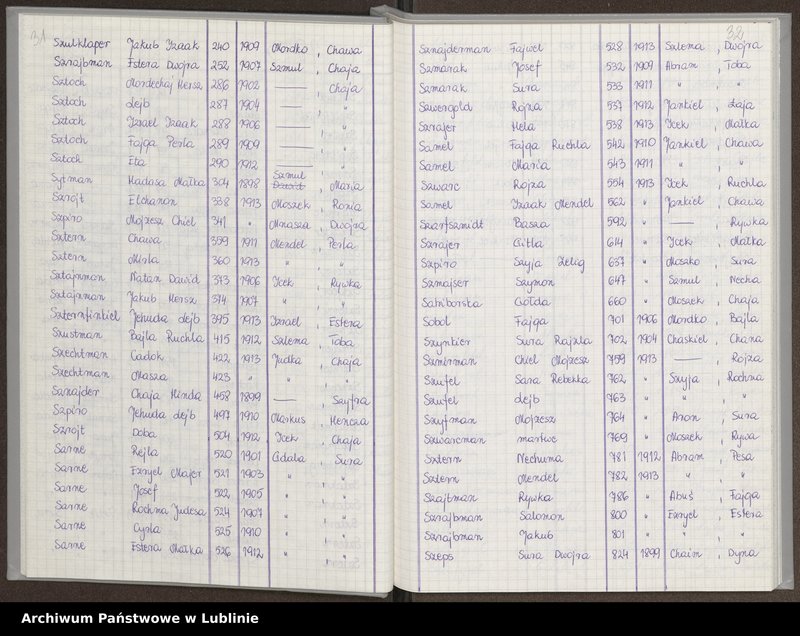 31
Szulklaper Jakub Izaak 240 1909 Mordko, Chawa
Szrajbman Estera Dwojra 252 1907 Szmul, Chaja
Sztoch Mordechaj Hersz 286 1902 — , Chaja
Sztoch Lejb 287 1904 — , "
Sztoch Izrael Izaak 288 1906 — , "
Sztoch Fajga Perla 289 1909 — , "
Sztoch Eta 290 1912 — , "
Sytman Hadasa Małka 304 1898 Szmul Dawid, Maria
Szrojt Elchanon 338 1913 Moszek, Ronia
Szpiro Mojzesz Chiel 341 " Mnasza, Dwojra
Sztern Chawa 359 1911 Mendel, Perla
Sztern Mirla 360 1913 " , "
Sztajnman Natan Dawid 373 1906 Icek, Rywka
Sztajnman Jakub Hersz 374 1907 " , "
Szternfinkiel Jehuda Lejb 395 1913 Izrael, Estera
Szustman Bajla Ruchla 415 1912 Szlema, Toba
Szechtman Cadok 422 1913 Judka, Chaja
Szechtman Masza 423 " " , "
Sznajder Chaja Hinda 458 1899 — , Szyfra
Szpiro Jehuda Lejb 497 1910 Markus, Hencza
Szrojt Doba 504 1912 Icek, Chaja
Sarne Rejla 520 1901 Gdala, Sura
Sarne Eznyel Majer 521 1903 " , "
Sarne Josef 522 1905 " , "
Sarne Rochma Judesa 524 1907 " , "
Sarne Cyrla 525 1910 " , "
Sarne Estera Małka 526 1912 " , "
32
Sznajderman Fajwel 528 1913 Szlema, Dwojra
Szmarak Josef 532 1909 Abram, Toba
Szmarak Sura 533 1911 " , "
Szwergold Rojza 537 1912 Jankiel, Łaja
Szrajer Hela 538 1913 Icek, Małka
Samel Fajga Ruchla 542 1910 Jankiel, Chawa
Samel Maria 543 1911 " , "
Szwarc Rojza 554 1913 Icek, Ruchla
Samel Izaak Mendel 562 " Jankiel, Chawa
Szarfszmidt Basza 592 " — , Rywka
Szrajer Gitla 614 " Icek, Małka
Szpiro Szyja Zelig 637 " Moszko, Sura
Szmajser Szymon 647 " Szmul, Necha
Satniborska Gołda 660 " Moszek, Chaja
Sobol Fajga 701 1906 Mordko, Bajla
Szynkier Sura Rajzla 702 1904 Chaskiel, Chana
Szmirman Chiel Mojzesz 759 1913 — , Rojza
Szufel Sara Rebekka 762 " Szyja, Rochma
Szufel Lejb 763 " " , "
Szufman Mojzesz 764 " Aron, Sura
Szwarcman martwe 769 " Moszek, Rywa
Sztern Nechuma 781 1912 Abram, Pesa
Sztern Mendel 782 1913 " , "
Szajbman Rywka 786 " Abuś, Fajga
Szrajbman Salomon 800 " Eznyel, Estera
Szrajbman Jakub 801 " " , "
Szeps Sura Dwojra 824 1899 Chaim, Dyna
Archiwum Państwowe w Lublinie